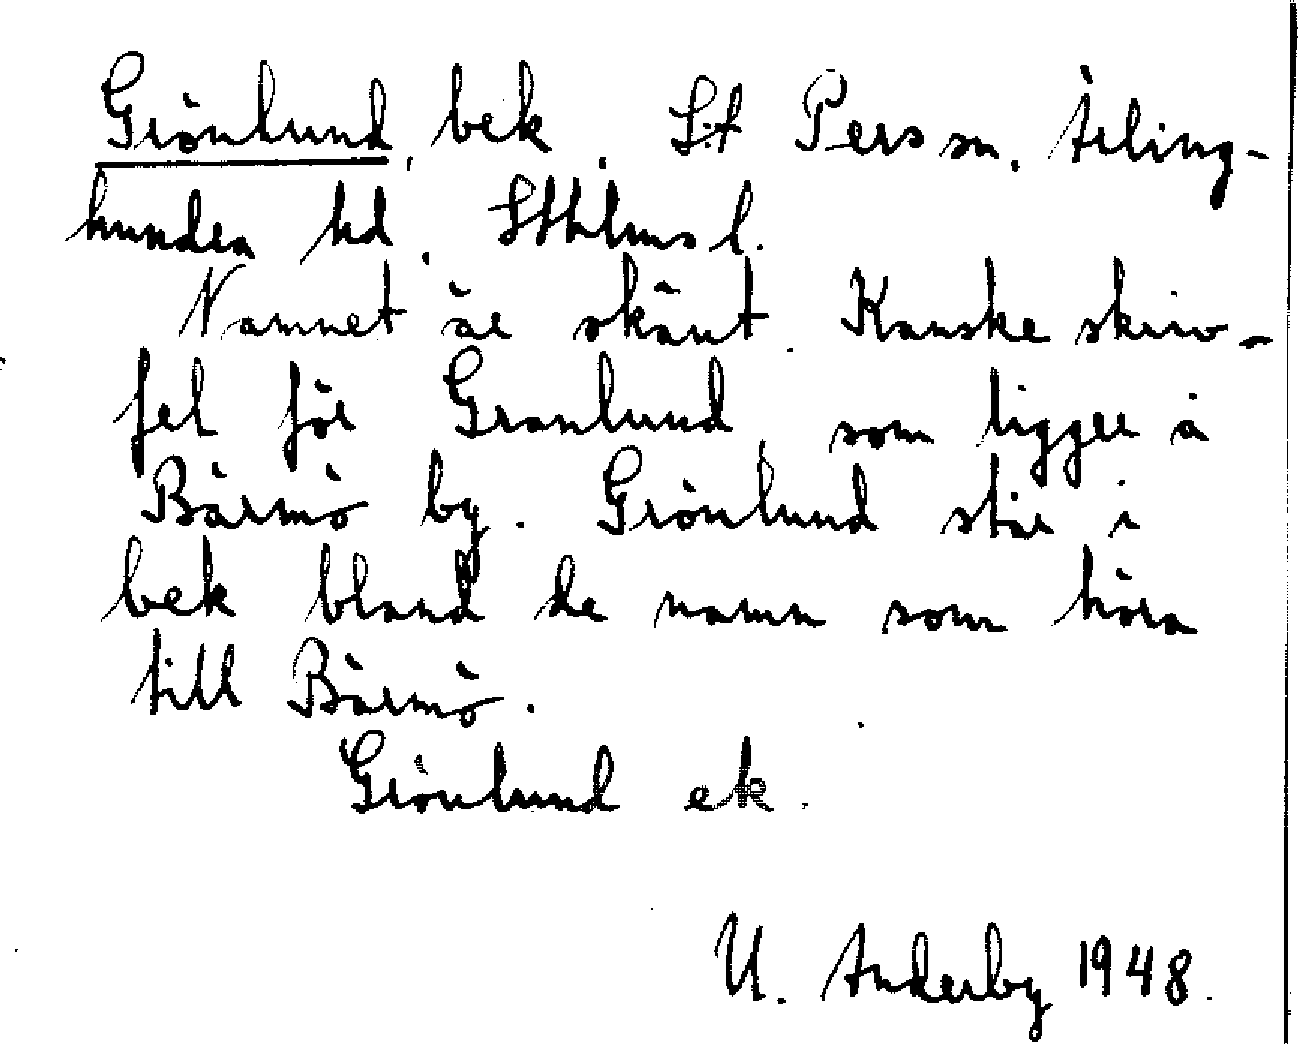 Grönlund, bek. S:t Pers sn, Ärling-
hundra hd. Sthlms l.
Namnet är okänt. Kanske skriv-
fel för Granlund, som ligger å
Bärmö by. Grönlund står i
bek bland de namn som höra
till Bärmö.
Grönlund ek.
U. Anderby 1948.